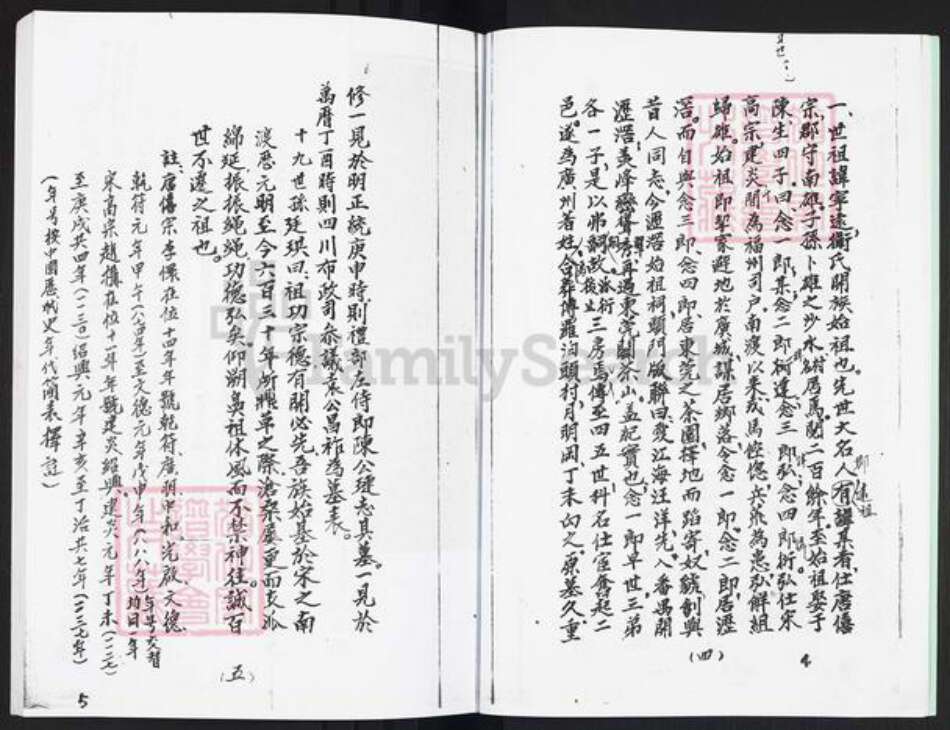 一、世祖諱寧遠衛氏開族始祖也。先世大名人有諱某者仕唐僖
鄭
遠祖
宗、郡守南雄、子孫卜雄之沙水村居焉、閱二百餘年、至始祖娶于
陳、生四子、曰念一郎、集、念二郎柯建、念三郎弘、念四郎衍、弘仕宋
高宗、建炎間為福州司戶、南渡以來、戎馬倥傯、兵燹為患、弘解組
歸雄、始祖即挈家避地於廣城、謀居鄉落、令念一郎、念二郎居瀝
滘、而自與念三郎、念四郎、居東莞之茶園、擇地而蹈寄、奴
昔人同志、今瀝滘始祖祠頭門版聯曰、愛江海汪洋先、入番禺開
瀝滘、羨峰巒聳秀再過東莞闢茶山、蓋紀實也、念一郎早世、三弟
各一子、是以弗嗣、故衍三房焉、傳至四五世科名仕宦奮起二
邑、遂為廣州著姓、合葬博羅泊頭村月明岡丁未向之原、墓久重
(四)
4
修一見於明正統庚申時則禮部左侍郎陳公璉志其墓。一見於
萬曆丁酉時則四川布政司參議袁公昌祚為墓表。
十九世孫廷珙曰、祖功宗德有開必先、吾族始基於宋之南
渡、歷元明至今六百三十年、漸興革之際、滄桑屢更而支派
綿延、振振繩繩、功德弘矣、仰溯鼻祖休風而不禁神往、誠百
世不遷之祖也。
註、唐僖宗李儇在位十四年年號乾符、廣明中和光啟文德、
乾符元年甲午(八七四年)至文德元年戊申年(八八八年)均日一年
年號交替
宋高宗趙構在位十一年年號建炎紹興建炎元年丁未(一一二七)
至庚戌共四年(一一三〇)紹興元年辛亥至丁治共七年(一一三七年)
(年號按中國歷代史年代簡表擇註)
(五)
5
FamilySearch